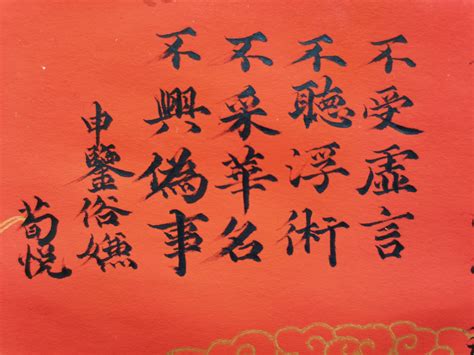 不受虛言
不聽浮術
不采華名
不興偽事
申鑒俗嫌
荀悅